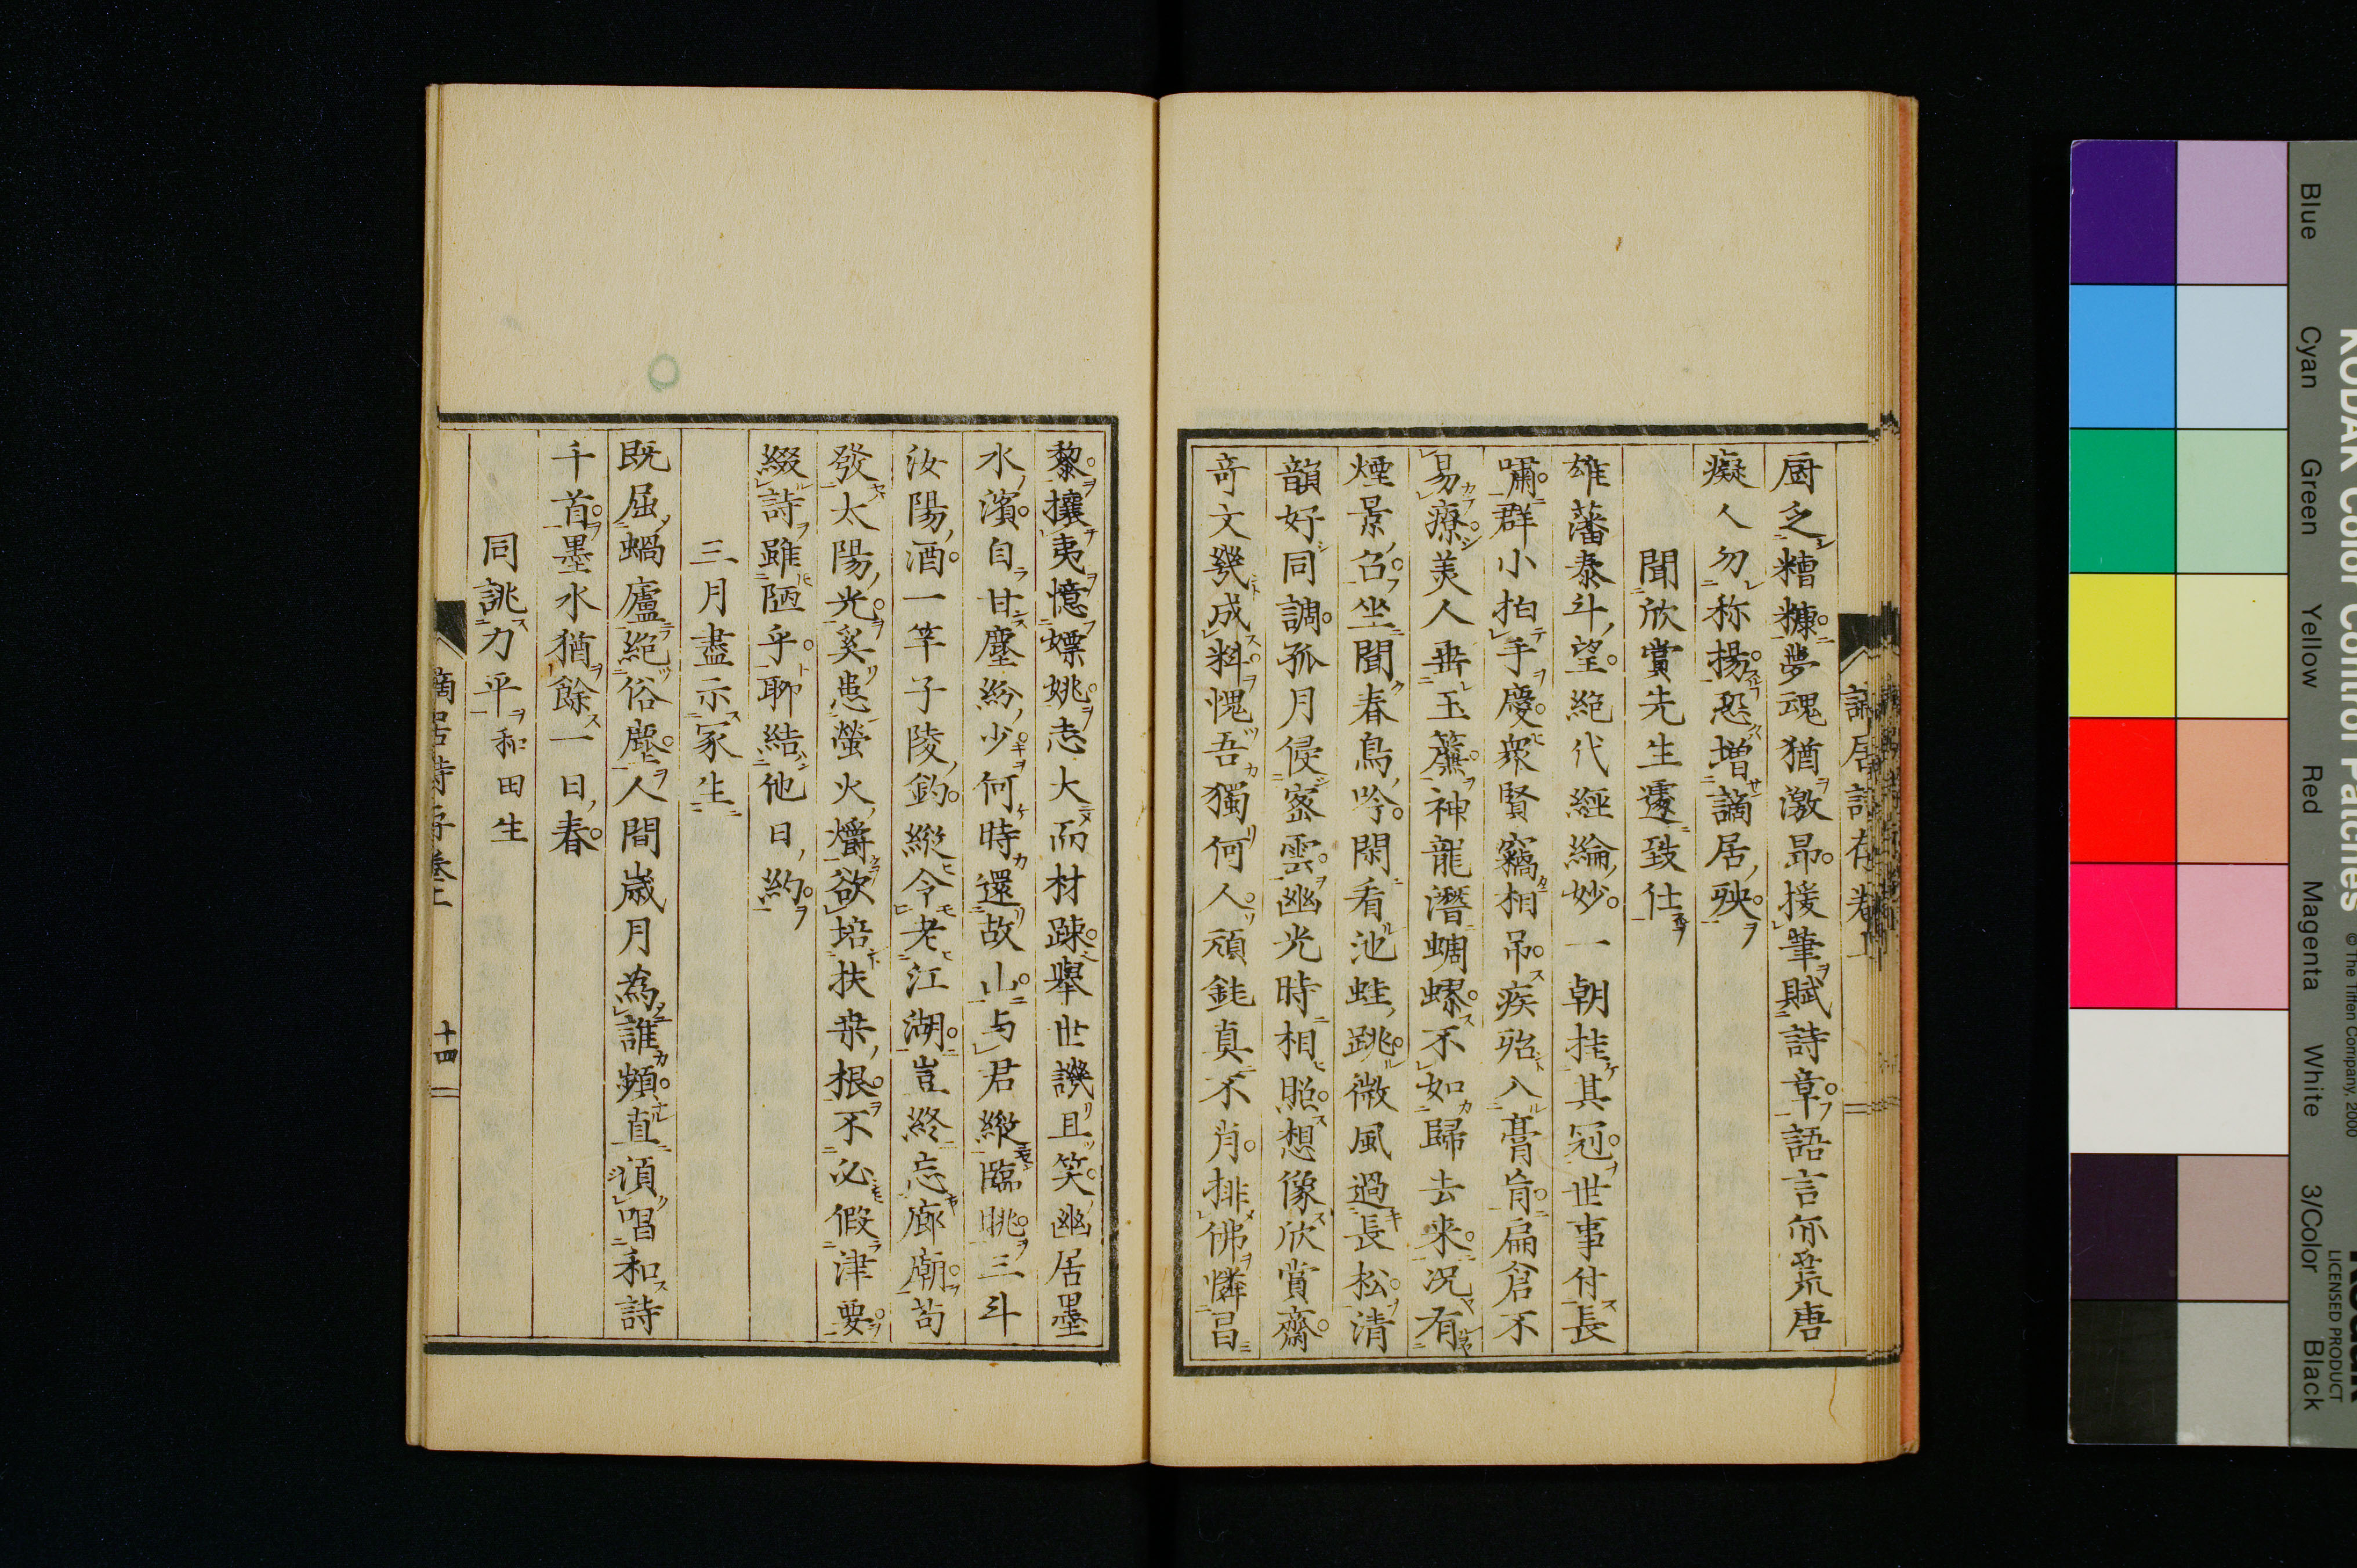 厨乏糟糠夢魂猶激昂援筆賦詩章語言亦荒唐
癡人勿称揚恐増謫居殃
聞欣賞先生遽致仕
雄藩泰斗望絶代經綸妙一朝挂其冠世事付長
嘯群小拍手慶衆賢竊相吊疾殆入膏肓扁倉不
易療美人垂玉簾神龍潜蜩螺不如歸去来况有
煙景召坐聞春鳥吟閑看池蛙跳微風過長松清
韻好同調孤月侵密雲幽光時相照想像欣賞齋
奇文幾成料愧吾獨何人頑鈍真不肖排佛憐昌
黎攘夷憶嫖姚志大而材疎舉世譏且笑幽居墨
水濱自甘塵紛少何時還故山与君縱臨眺三斗
汝陽酒一竿子陵釣縱令老江湖豈終忘廊廟苟
發太陽光奚患螢火爝欲培扶桒根不必假津要
綴詩雖陋乎聊結他日約
三月盡示冢生
既屈蝸廬絶俗塵人間歳月為誰頻直須唱和詩
千首墨水猶餘一日春
同誂力平和田生
謫居詩存巻上
十四
Blue
Cyan
Green
Yellow
Red
Magenta
White
3/Color
Black
KODAK Color Control Patches
© The Tiffen Company, 2000
LICENSED PRODUCT